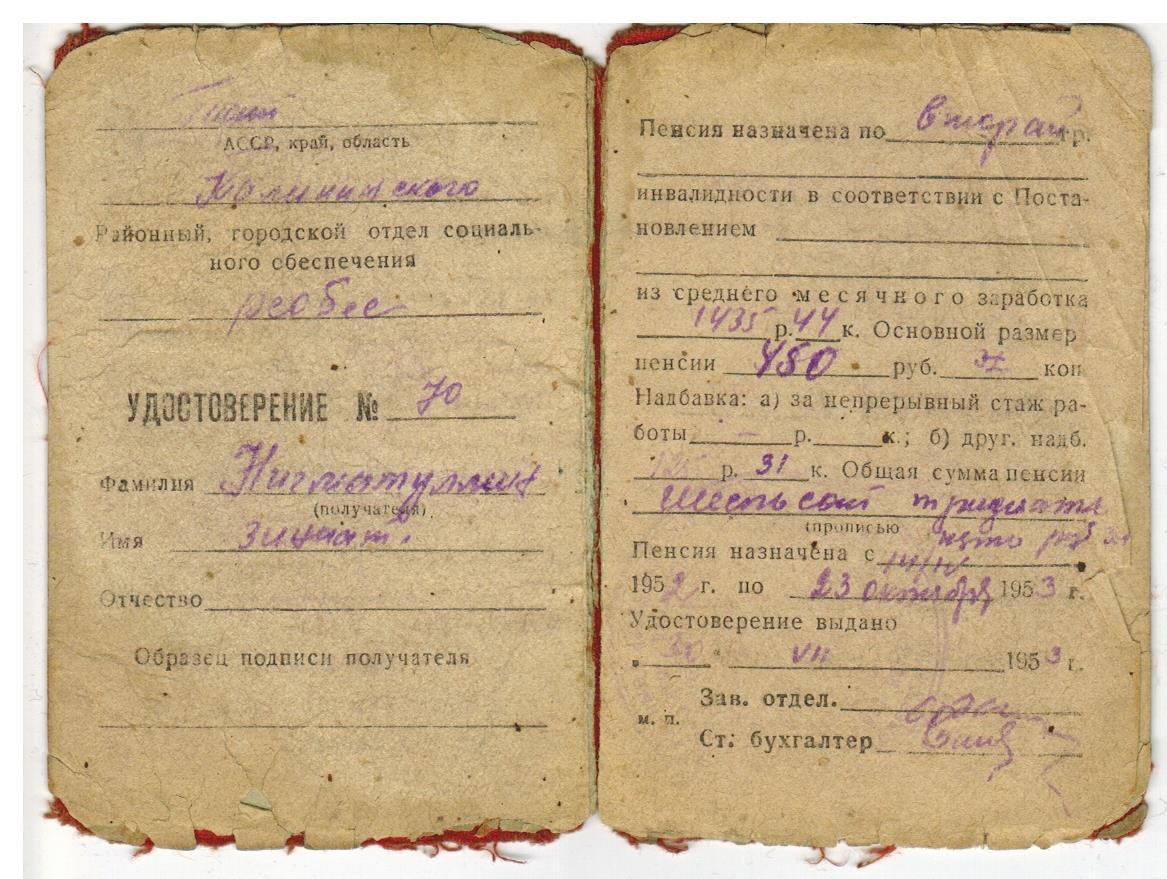 АССР, край, область
Калининского
Районный, городской отдел социаль-
ного обеспечения
УДОСТОВЕРЕНИЕ № 70
Фамилия Нигматуллин
(получателя)
Имя
Отчество
Образец подписи получателя
Пенсия назначена по второй гр.
инвалидности в соответствии с Поста-
новлением
из среднего месячного заработка
1435 р. 44 к. Основной размер
пенсии 450 руб. коп
Надбавка: а) за непрерывный стаж ра-
боты — р. к.; б) друг. надб.
р. 31 к. Общая сумма пенсии
тридцать
(прописью
Пенсия назначена с 14/IV
1952 г. по 23 октября 1953 г.
Удостоверение выдано
„30 “ VII 1953 г.
Зав. отдел.
м. п.
Ст. бухгалтер